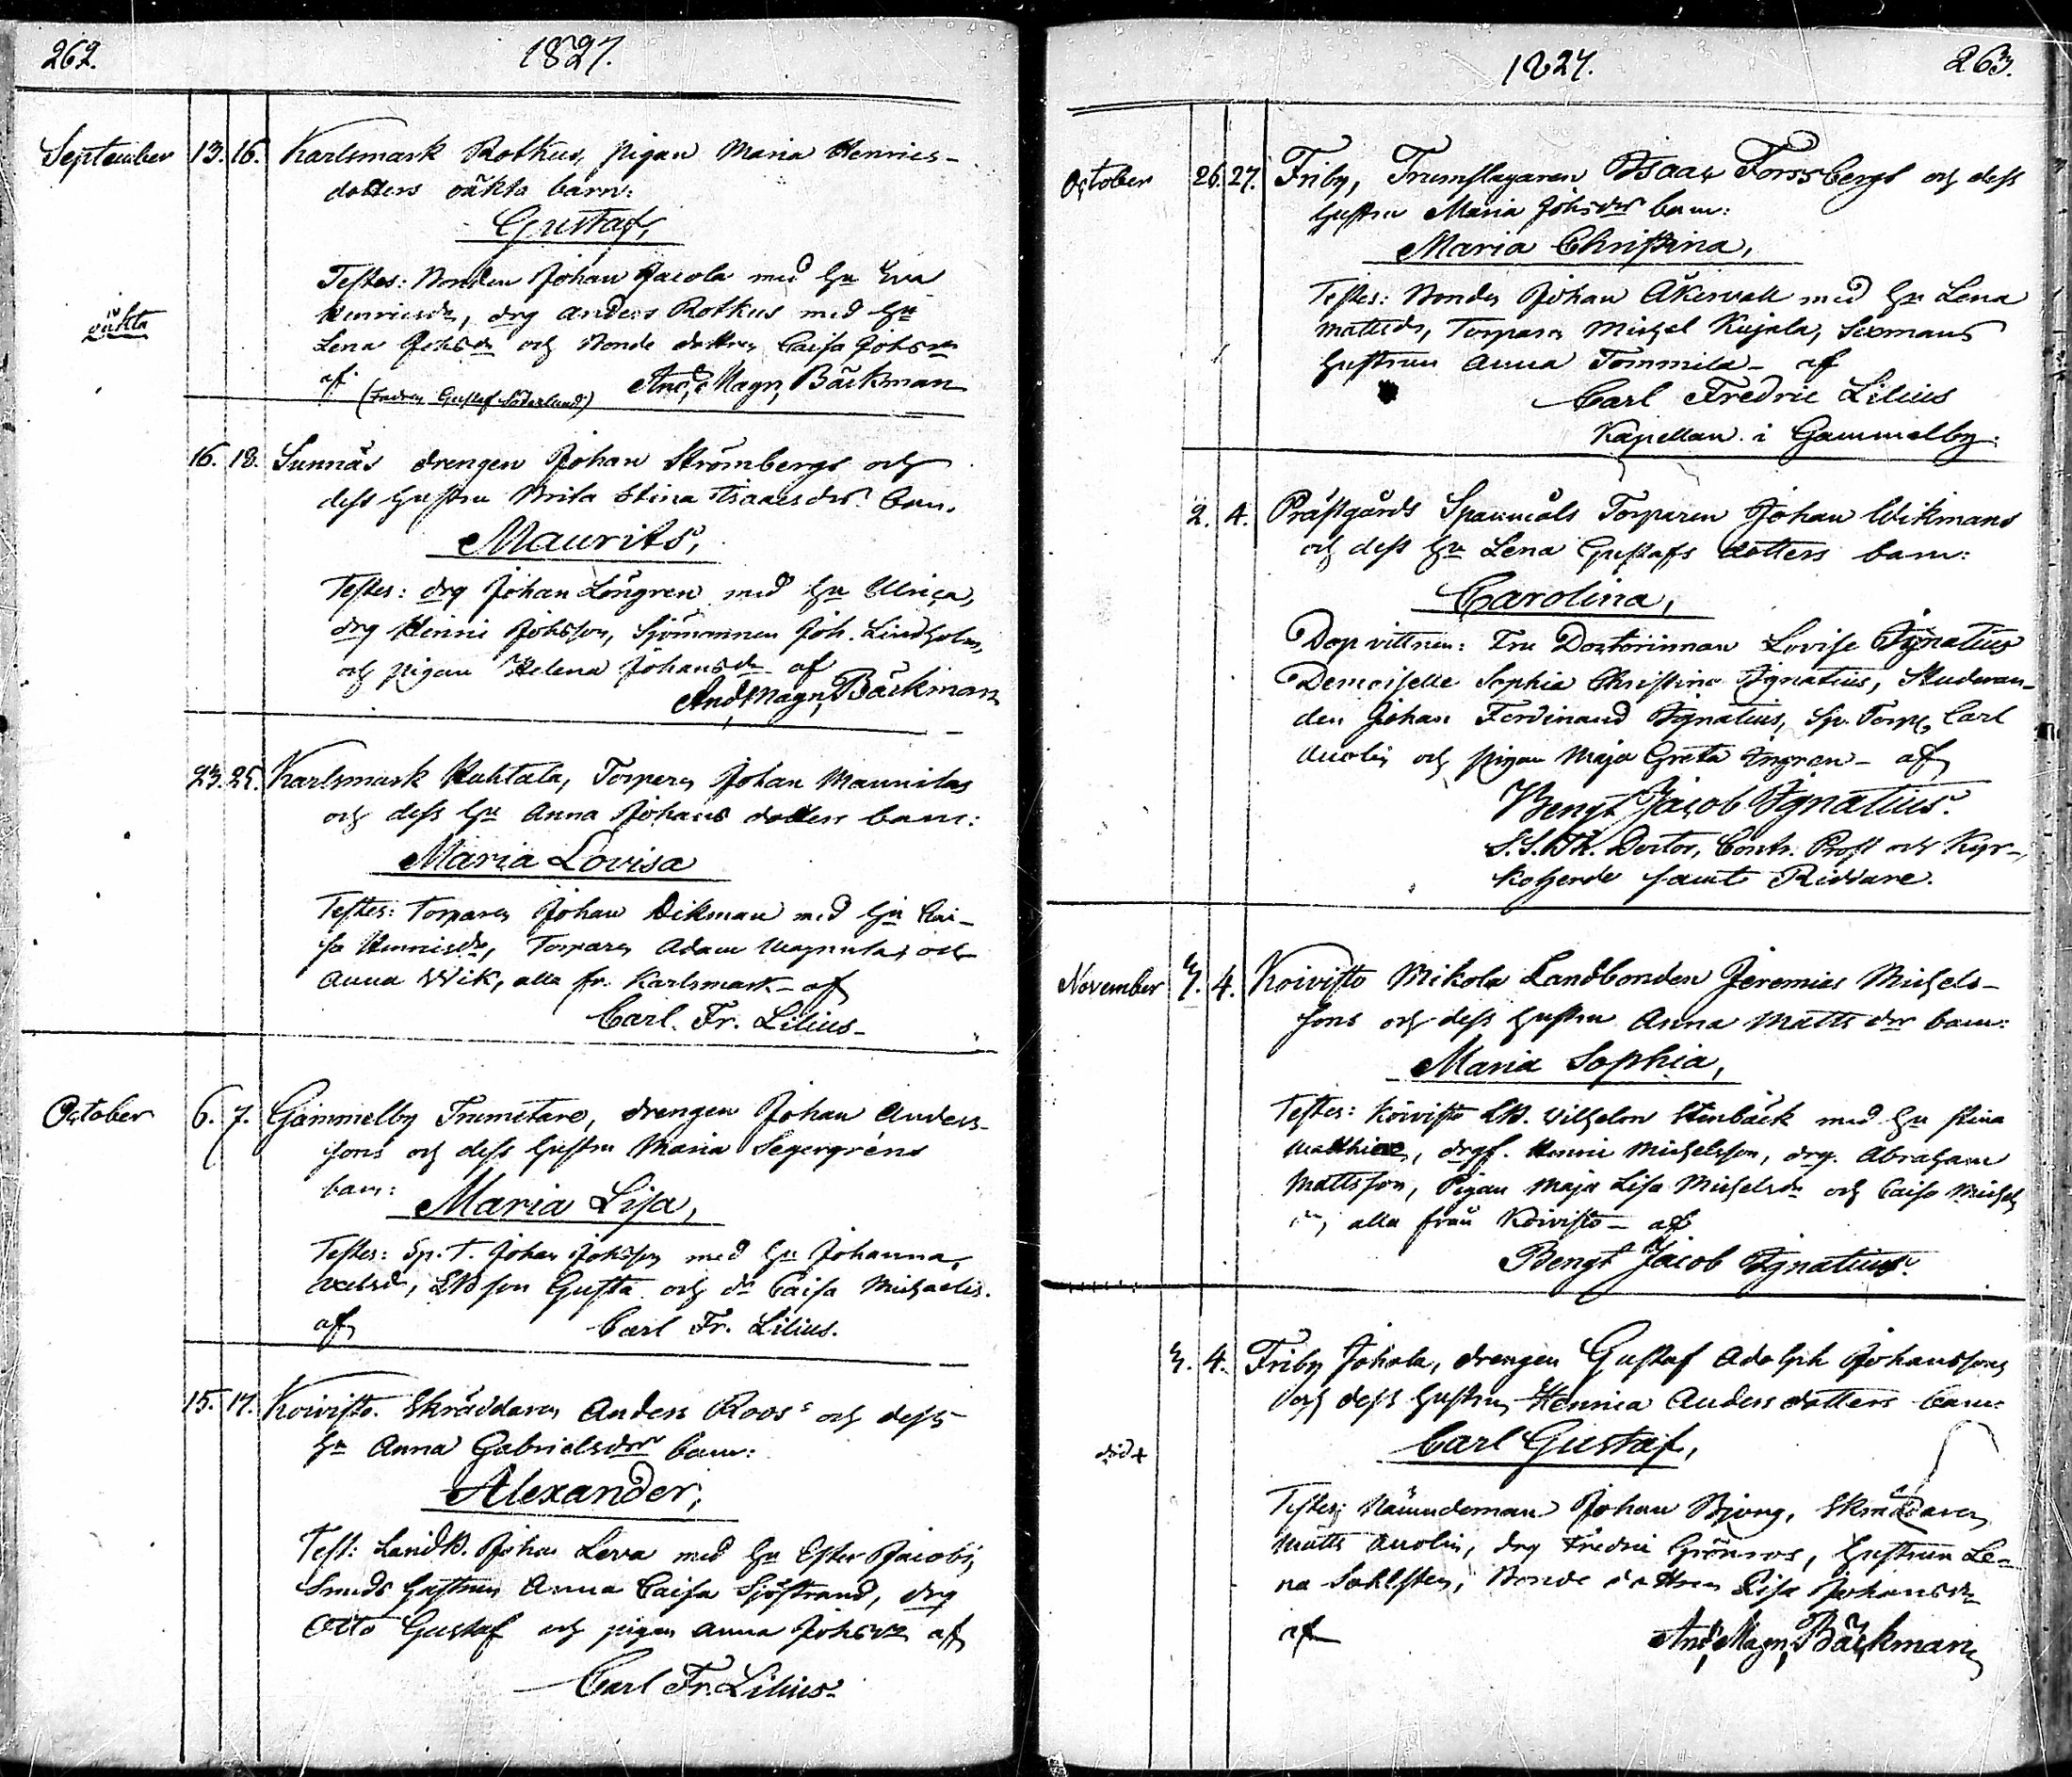 262. 1827.
September 13. 16. Karlsmark Rotkus, pigan Maria Henrics-
dotters oäkta barn:
Gustaf,
Testes: Bonden Johan Jacola med hu Eva
oäkta
Henricsdr, drg Anders Rotkus med hu
Lena Johsdr och Bonde dottren Caisa Johsdr
af (Fadren Gustaf Söderlund) And, Magn, Bäckman
16. 18. Sunnäs drengen Johan Strömbergs och
dess hustru Brita Stina Isaacsdrs barn.
Maurits,
Testes: drg Johan Löngren med hu Ulrica,
drg Henric Johsson, Sjömannen Joh. Lindholm,
och pigan Helena Johansdr af
And, Magn, Bäckman
23. 25. Karlsmark Huhtala, Torparen Johan Maunilas
och dess hu Anna Johans dotters barn:
Maria Lovisa
Testes: Torparen Johan Dikman med hu Cai-
sa Henricsdr, Torparen Adam och
Anna Wik, alla fr. Karlsmark - af
Carl. Fr. Lilius
October 6. 7. Gammelby Trumetare, drengen Johan Anders-
sons och dess hustru Maria Segergréns
barn:
Maria Lisa,
Testes: Sp. T. Johan Johsson med hu Johanna
Axelsdr, LBson Gusta och dr Caisa Michaelis.
af Carl Fr. Lilius.
15. 17. Koivisto. Skräddaren Anders Roos's och dess
hu Anna Gabrielsdrs barn:
Alexander,
Test: LandB. Johan Leva med hu Ester Jacobs,
Smeds hustrun Anna Caisa Sjöstrand, drg
Otto Gustaf och pigan Anna Johsdr af
Carl Fr. Lilius.
1827. 263.
October 26. 27. Friby, Trumslagaren Isaac Forssbergs och dess
hustru Maria Johsdrs barn:
Maria Christina,
Testes: Bonden Johan Åkervall med hu Lena
Mattsdr, Torparen Michel Kujala, Sexmans
hustrun Anna Tommila - af
Carl Fredric Lilius
Kapellan i Gammelby.
2. 4. Prästgårds Spannmåls Torparen Johan Wikmans
och dess hu Lena Gustafs dotters barn:
Carolina,
Dop vittnen: Fru Doctorinnan Lovise Ignatius
Demoiselle Sophia Christina Ignatius, Studeran-
den Johan Ferdinand Ignatius, Sp. Torp. Carl
och pigan Maja Greta - af
Bengt Jacob Ignatius.
S.S. Th. Doctor, Contr. Prost och Kyr-
koherde samt Riddare.
November 3. 4. Koivisto Mikola Landbonden Jeremias Michels-
sons och dess hustru Anna Matts dr barn:
Maria Sophia,
Testes: Koivisto LB. Vilhelm Stenbäck med hu Stina
drgs. Henric Michelsson, drg. Abraham
Mattsson, Pigan Maja Lisa Michelsdr och Caisa Michels
dr, alla från Koivisto - af
Bengt Jacob Ignatius.
3. 4. Friby Johola, drengen Gustaf Adolph Johanssons
och dess hustru Hennica Anders dotters barn:
Carl Gustaf,
död +
Testes: Nämndeman Johan Bjong, Skräddaren
Matts drg Fredric Grönroos, hustrun Le-
na Sahlsten, Bonde dottren Lisa Johansdr
af And, Magn, Bäckman